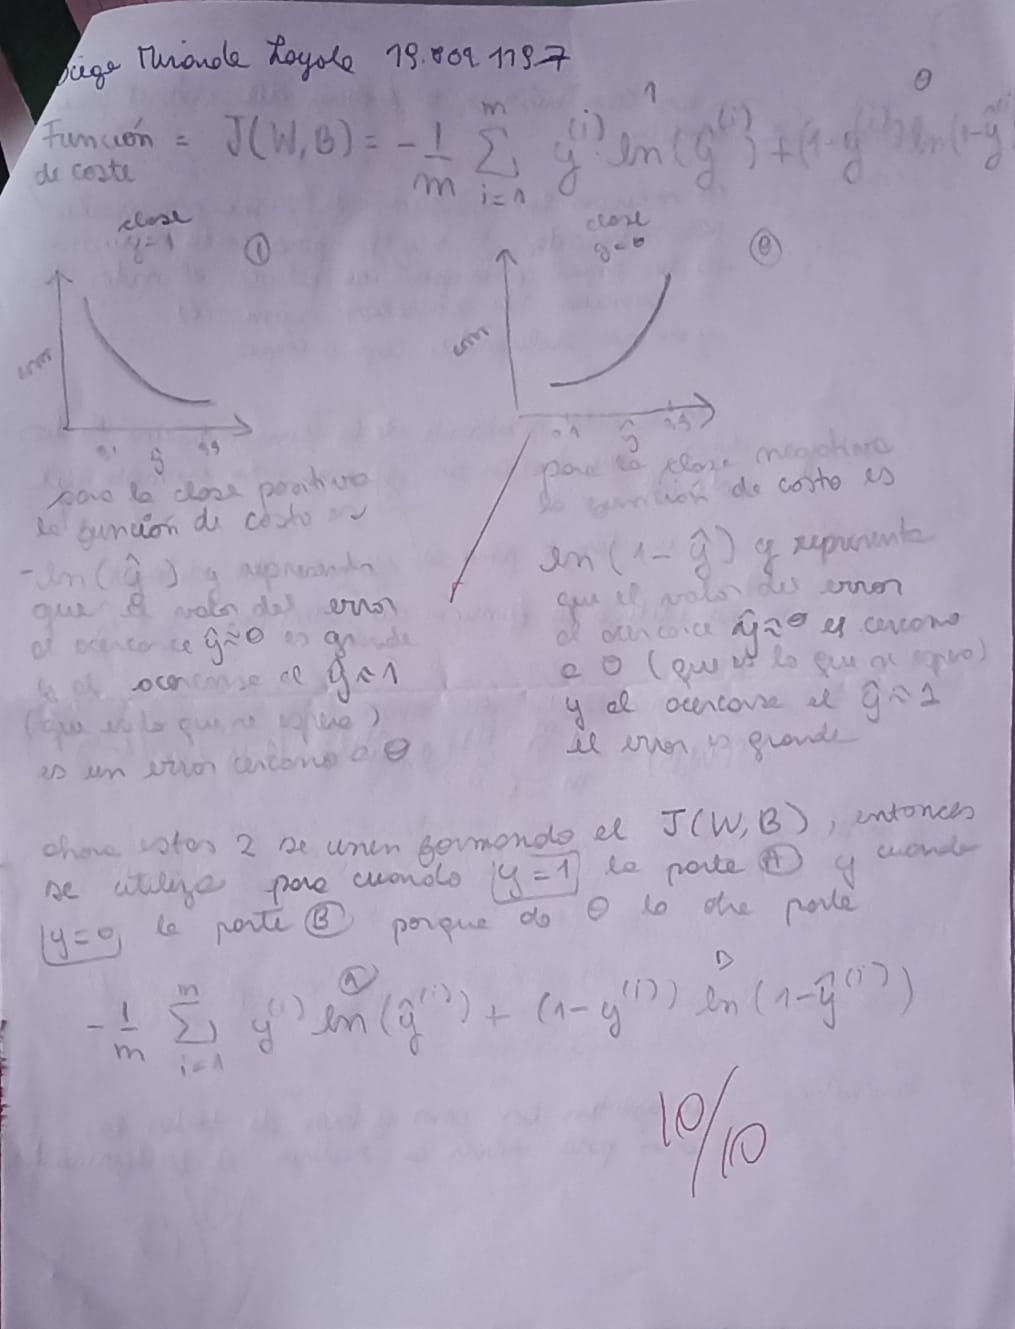 Diego Miranda Loyola 19.002 119-7
1 0
Función = J(W,B) = - 1/m Σ i=1 m y^(i) ln(ŷ^(i)) + (1-y^(i)) ln(1-ŷ
de coste
clase
y=1 ①
clase
y=0
error
error
0.1 ŷ 0.9
0.1 ŷ 0.9
para la clase positiva
la función de costo es
-ln(ŷ) y representa
que el valor del error
al acercarce ŷ≈0 es grande
y al acercarse al ŷ≈1
(que es lo que se espera)
es un error cercano a 0
para la clase negativa
la función de costo es
ln(1-ŷ) y representa
que el valor del error
al acercarce ŷ≈0 es cercano
a 0 (que es lo que se espera)
y al acercarse al ŷ≈1
el error es grande
ahora estos 2 se unen formando el J(W,B), entonces
se utiliza para cuando y=1 la parte Ⓐ y cuando
y=0 la parte Ⓑ porque da 0 la otra parte
Ⓐ
- 1/m Σ i=1 m y^(i) ln(ŷ^(i)) + (1-y^(i)) ln(1-ŷ^(i))
10/10